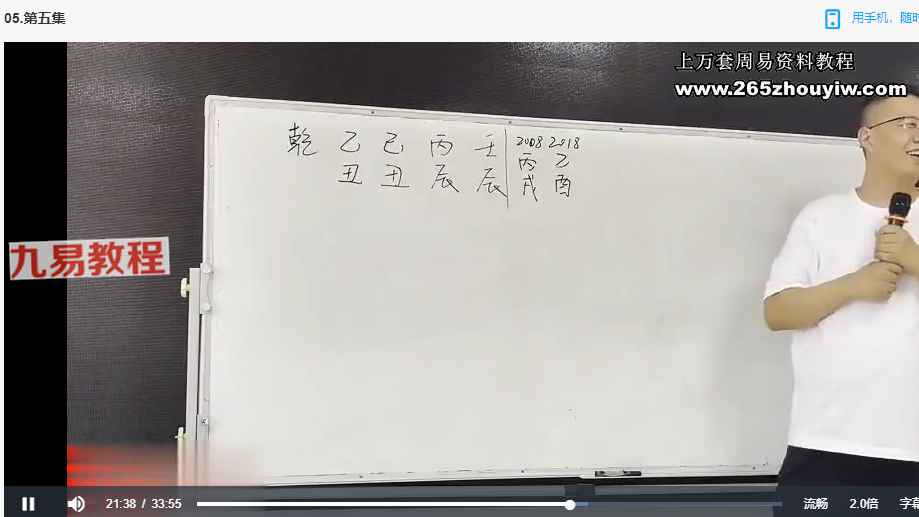 05.第五集
用手机，随时
上万套周易资料教程
www.265zhouyiw.com
乾 乙 己 丙 壬 2008 2018
丑 丑 辰 辰 丙 乙
戌 酉
九易教程
21:38 / 33:55
流畅 2.0倍 字幕